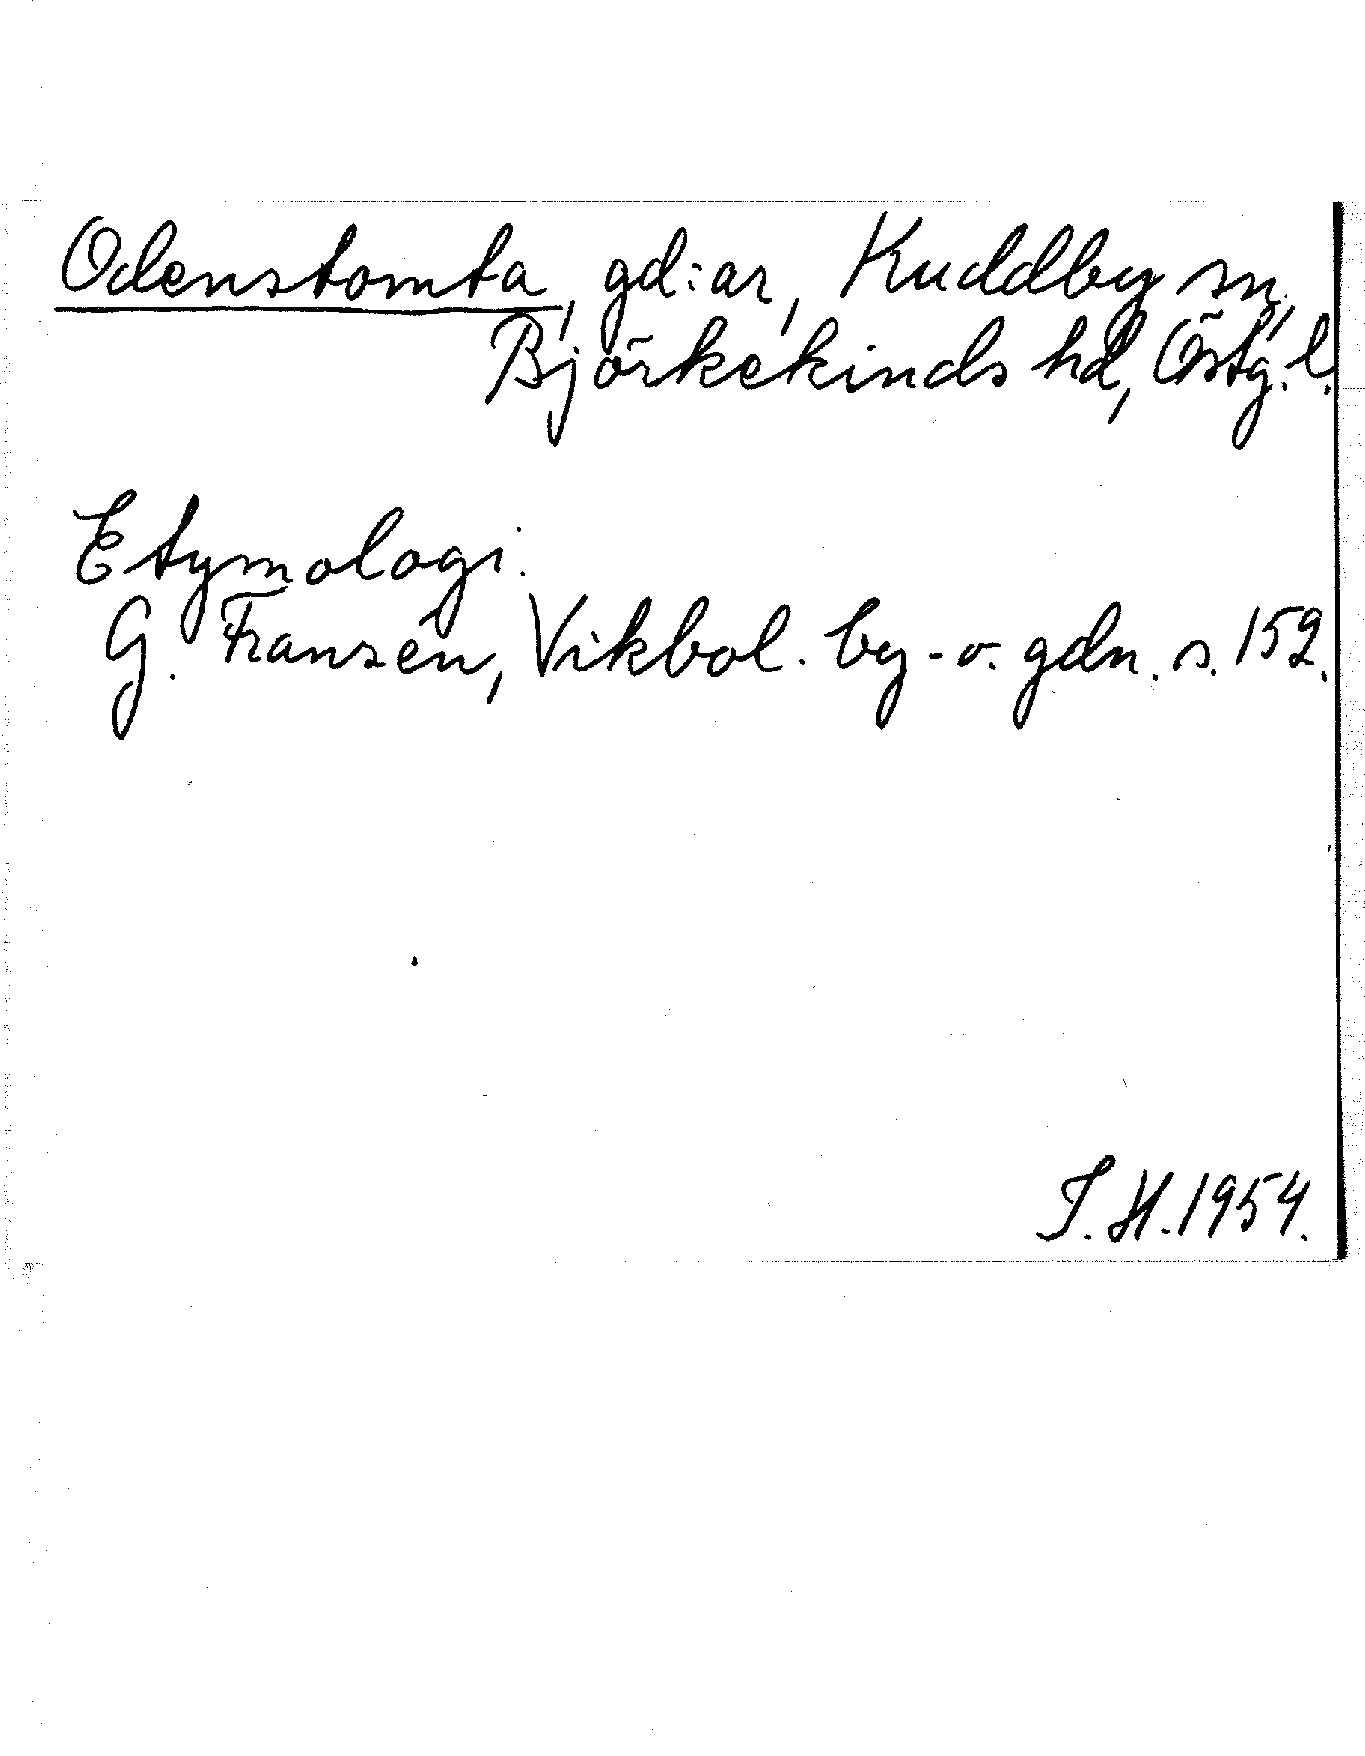 Odenstomta, gd:ar, Kuddby sn,
Björkekinds hd, Östg. l.
Etymologi.
G. Franzén, Vikbol. by- o. gdn. s. 152.
T. H. 1954.